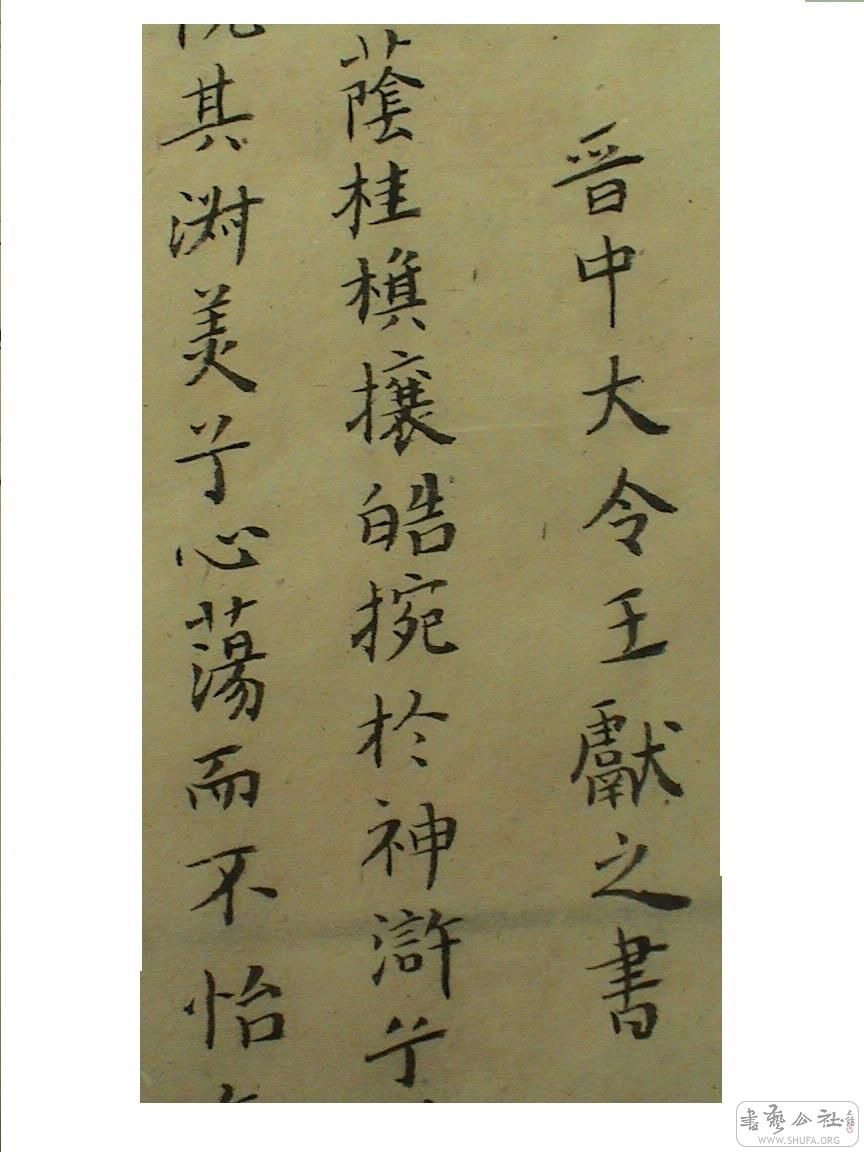 晋中大令王獻之書
蔭桂橖攘皓捥於神滸兮
其淵美兮心蕩而不怡
書藝公社
WWW.SHUFA.ORG